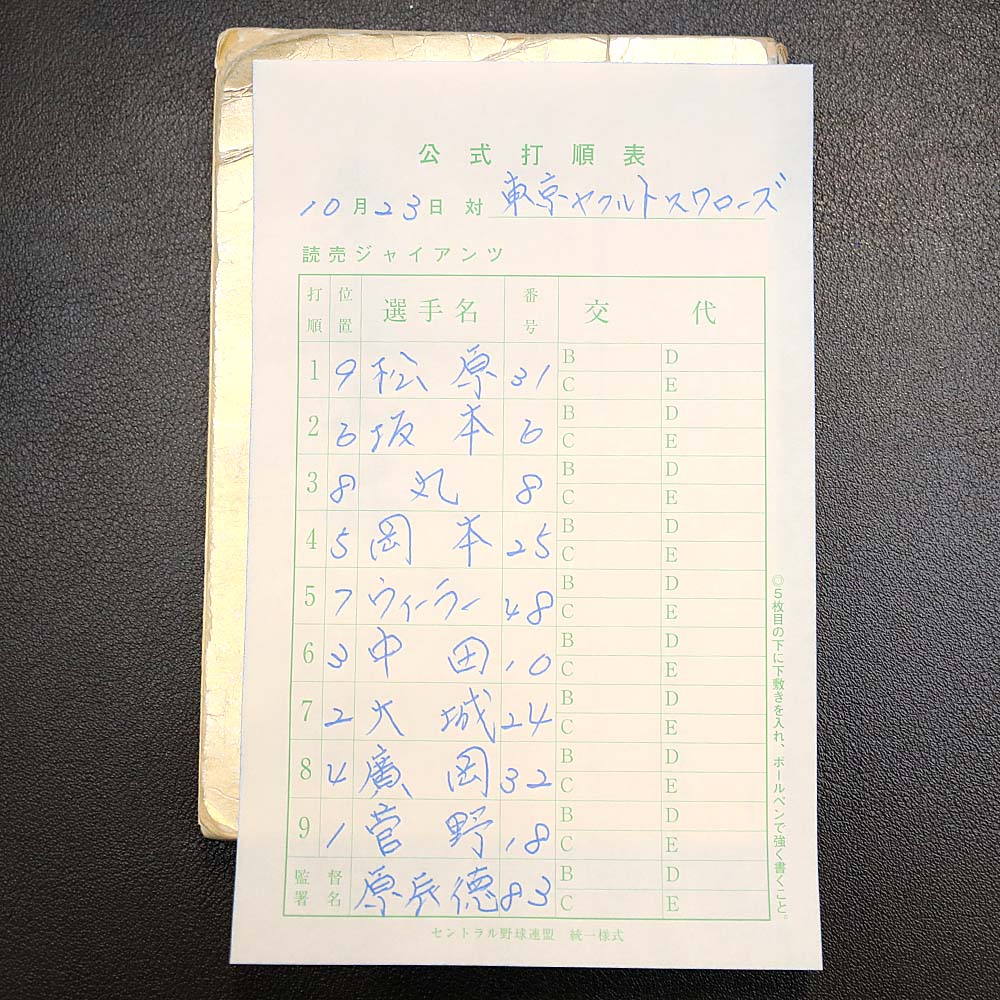 公式打順表
10月23日 対 東京ヤクルトスワローズ
読売ジャイアンツ
打順 位置 選手名 番号 交代
1 9 松原 31 B D C E
2 6 坂本 6 B D C E
3 8 丸 8 B D C E
4 5 岡本 25 B D C E
5 7 ウィーラー 48 B D C E
6 3 中田 10 B D C E
7 2 大城 24 B D C E
8 4 廣岡 32 B D C E
9 1 菅野 18 B D C E
監督署名 原辰徳 83 B D C E
セントラル野球連盟 統一様式
◎5枚目の下に下敷きを入れ、ボールペンで強く書くこと。